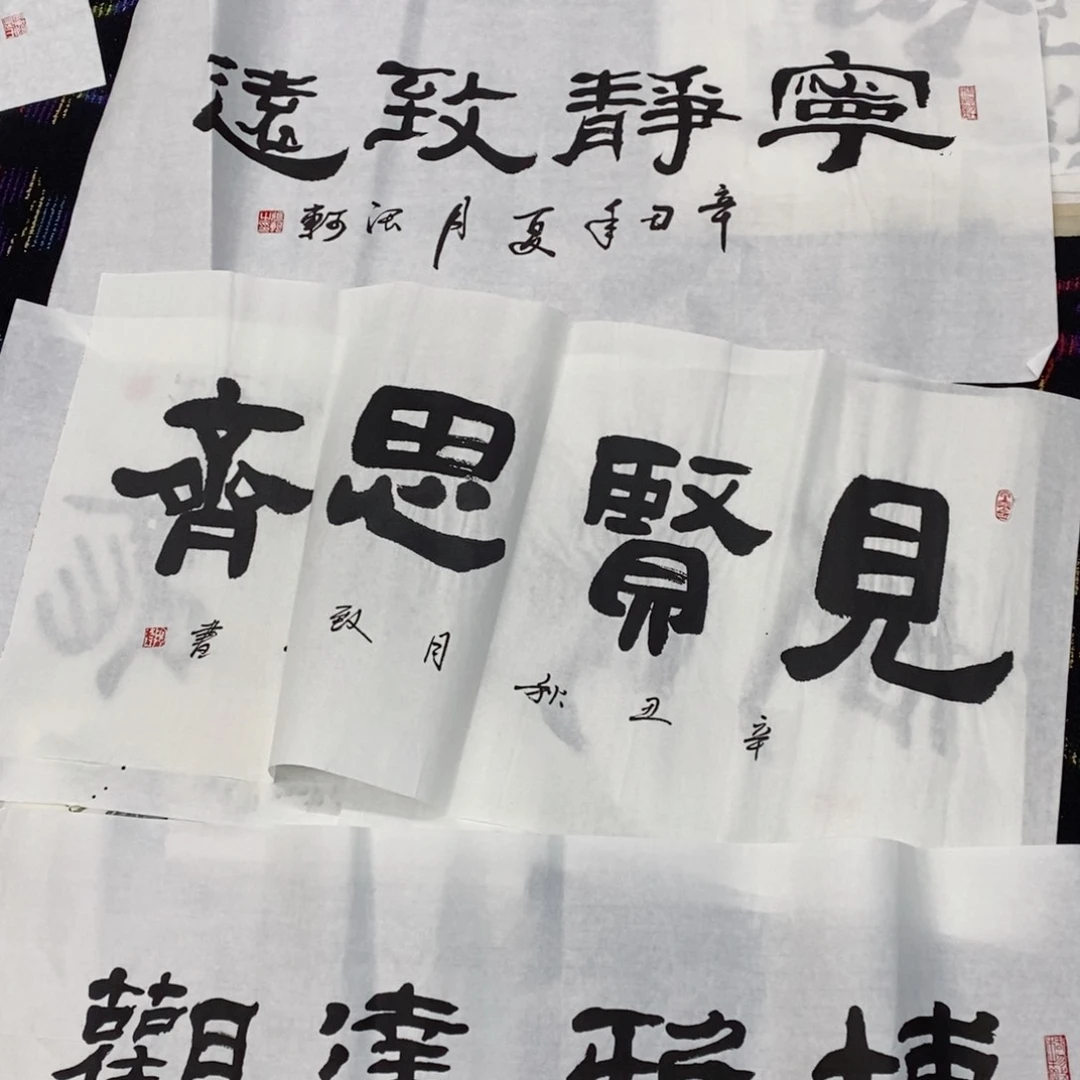 寧靜致遠
辛丑年夏月
見賢思齊
辛丑秋月
書
博雅達觀